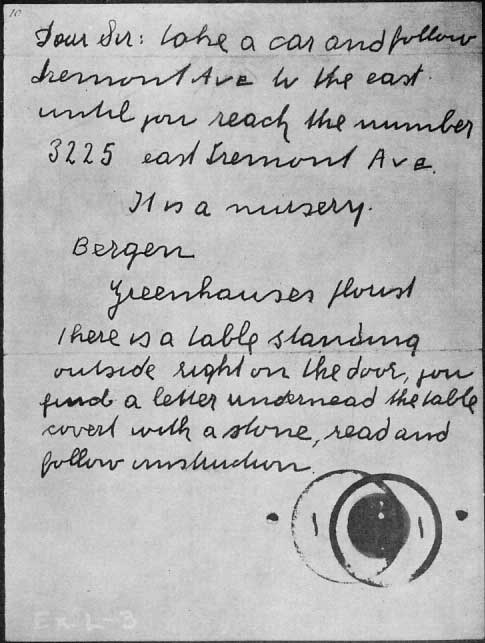 10
Dear Sir: take a car and follow
tremont Ave to the east
until you reach the number
3225 east tremont Ave.
It is a nursery.
Bergen
Greenhauses florist
there is a table standing
outside right on the door, you
find a letter undernead the table
covert with a stone, read and
follow instruction.
Ex L-3